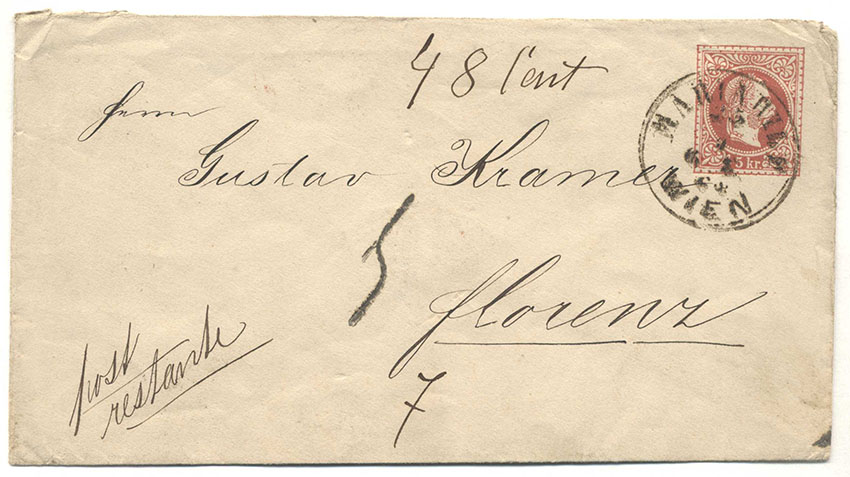 48 Cent
Herrn
Gustav Kramer
5
Florenz
7
post
restante
MARIAHILF
WIEN
5 kr